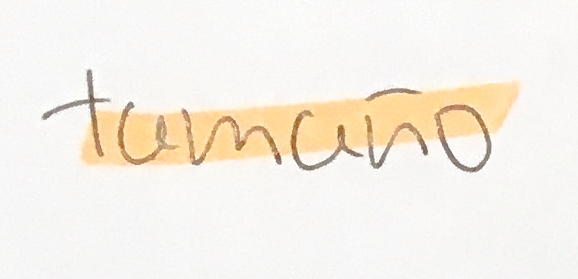 tamaño